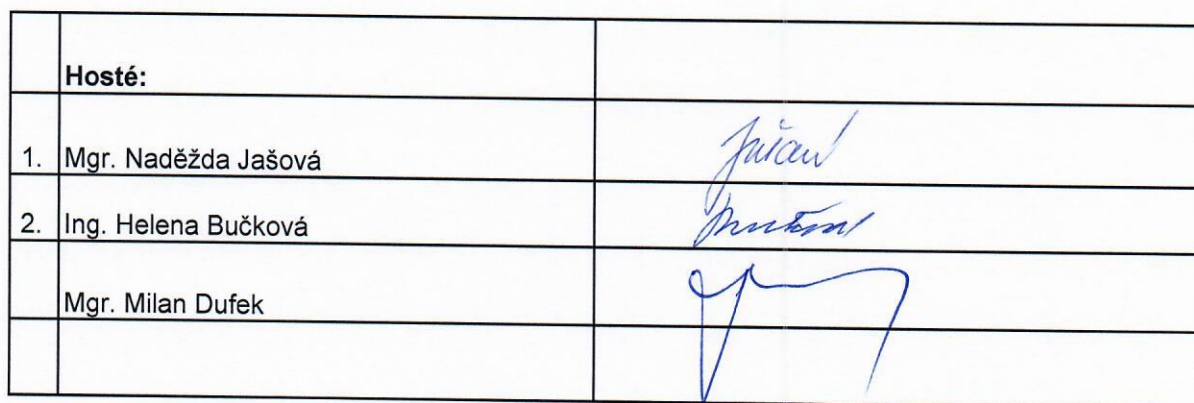 Hosté:
1. Mgr. Naděžda Jašová
2. Ing. Helena Bučková
Mgr. Milan Dufek